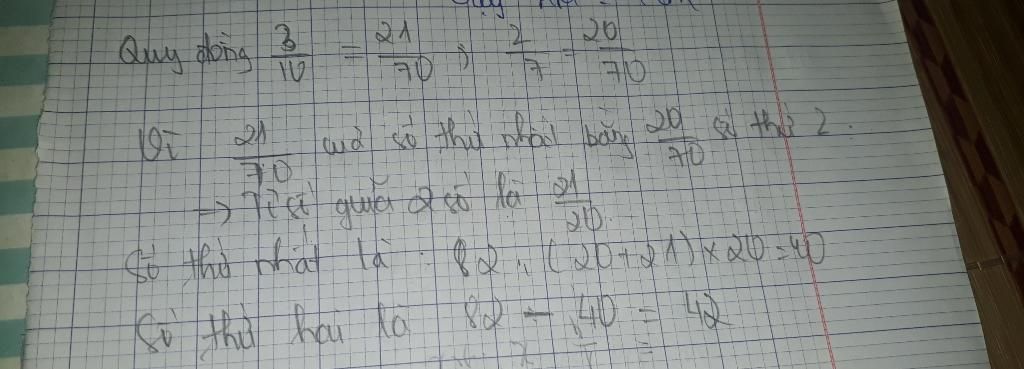 Quy đồng 3/10 = 21/70 ; 2/7 = 20/70
Vì 21/70 của số thứ nhất bằng 20/70 số thứ 2.
→ Tỉ số giữa 2 số là 21/20
Số thứ nhất là : 82 : (20 + 21) × 20 = 40
Số thứ hai là 82 - 40 = 42